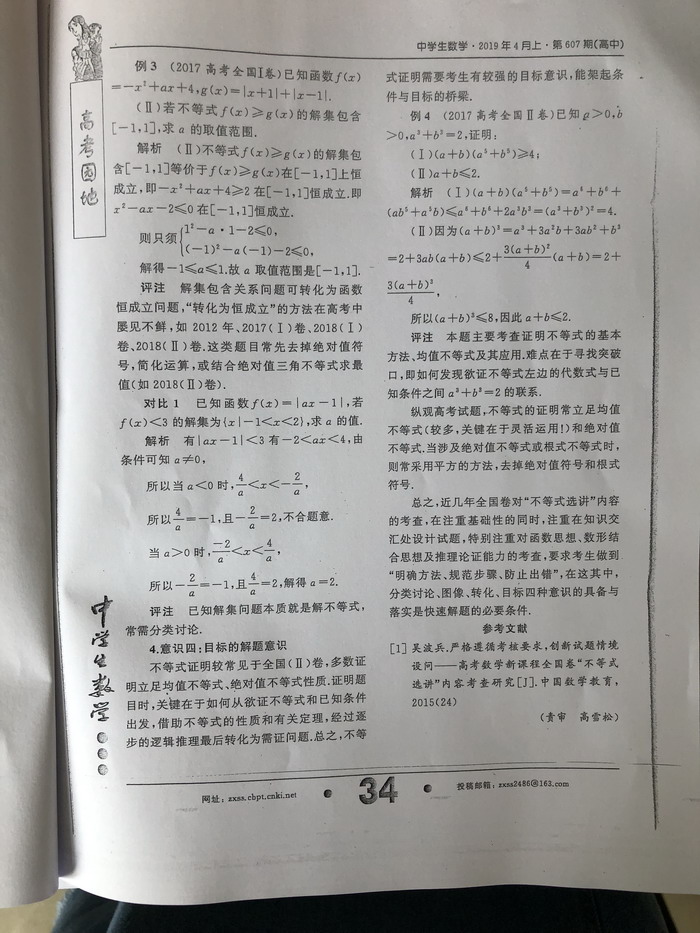 中学生数学·2019年4月上·第607期(高中)
高考园地
例3 (2017高考全国Ⅰ卷)已知函数f(x)
=-x²+ax+4,g(x)=|x+1|+|x-1|.
(Ⅱ)若不等式f(x)≥g(x)的解集包含
[-1,1],求a的取值范围.
解析 (Ⅱ)不等式f(x)≥g(x)的解集包
含[-1,1]等价于f(x)≥g(x)在[-1,1]上恒
成立,即-x²+ax+4≥2在[-1,1]恒成立.即
x²-ax-2≤0在[-1,1]恒成立.
则只须{1²-a·1-2≤0,
(-1)²-a(-1)-2≤0,
解得-1≤a≤1.故a取值范围是[-1,1].
评注 解集包含关系问题可转化为函数
恒成立问题,“转化为恒成立”的方法在高考中
屡见不鲜,如2012年、2017(Ⅰ)卷、2018(Ⅰ)
卷、2018(Ⅱ)卷.这类题目常先去掉绝对值符
号,简化运算,或结合绝对值三角不等式求最
值(如2018(Ⅱ)卷).
对比1 已知函数f(x)=|ax-1|,若
f(x)<3的解集为{x|-1<x<2},求a的值.
解析 有|ax-1|<3有-2<ax<4,由
条件可知a≠0,
所以当a<0时,4/a<x<-2/a,
所以4/a=-1,且-2/a=2,不合题意.
当a>0时,-2/a<x<4/a,
所以-2/a=-1,且4/a=2,解得a=2.
评注 已知解集问题本质就是解不等式,
常需分类讨论.
4.意识四:目标的解题意识
不等式证明较常见于全国(Ⅱ)卷,多数证
明立足均值不等式、绝对值不等式性质.证明题
目时,关键在于如何从欲证不等式和已知条件
出发,借助不等式的性质和有关定理,经过逐
步的逻辑推理最后转化为需证问题.总之,不等
式证明需要考生有较强的目标意识,能架起条
件与目标的桥梁.
例4 (2017高考全国Ⅱ卷)已知a>0,b
>0,a³+b³=2,证明:
(Ⅰ)(a+b)(a⁵+b⁵)≥4;
(Ⅱ)a+b≤2.
解析 (Ⅰ)(a+b)(a⁵+b⁵)=a⁶+b⁶+
(ab⁵+a⁵b)≤a⁶+b⁶+2a³b³=(a³+b³)²=4.
(Ⅱ)因为(a+b)³=a³+3a²b+3ab²+b³
=2+3ab(a+b)≤2+3(a+b)²/4(a+b)=2+
3(a+b)³/4,
所以(a+b)³≤8,因此a+b≤2.
评注 本题主要考查证明不等式的基本
方法、均值不等式及其应用.难点在于寻找突破
口,即如何发现欲证不等式左边的代数式与已
知条件之间a³+b³=2的联系.
纵观高考试题,不等式的证明常立足均值
不等式(较多,关键在于灵活运用!)和绝对值
不等式.当涉及绝对值不等式或根式不等式时,
则常采用平方的方法,去掉绝对值符号和根式
符号.
总之,近几年全国卷对“不等式选讲”内容
的考查,在注重基础性的同时,注重在知识交
汇处设计试题,特别注重对函数思想、数形结
合思想及推理论证能力的考查,要求考生做到
“明确方法、规范步骤、防止出错”,在这其中,
分类讨论、图像、转化、目标四种意识的具备与
落实是快速解题的必要条件.
参考文献
[1] 吴波兵.严格遵循考核要求,创新试题情境
设问——高考数学新课程全国卷“不等式
选讲”内容考查研究[J].中国数学教育,
2015(24)
(责审 高雪松)
中学生数学
网址:zxss.cbpt.cnki.net
34
投稿邮箱:zxss2486@163.com